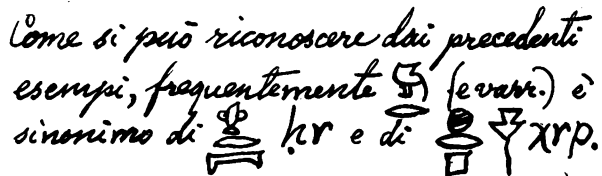 Come si può riconoscere dai precedenti
esempi, frequentemente (e varr.) è
sinonimo di ḥr e di χrp.